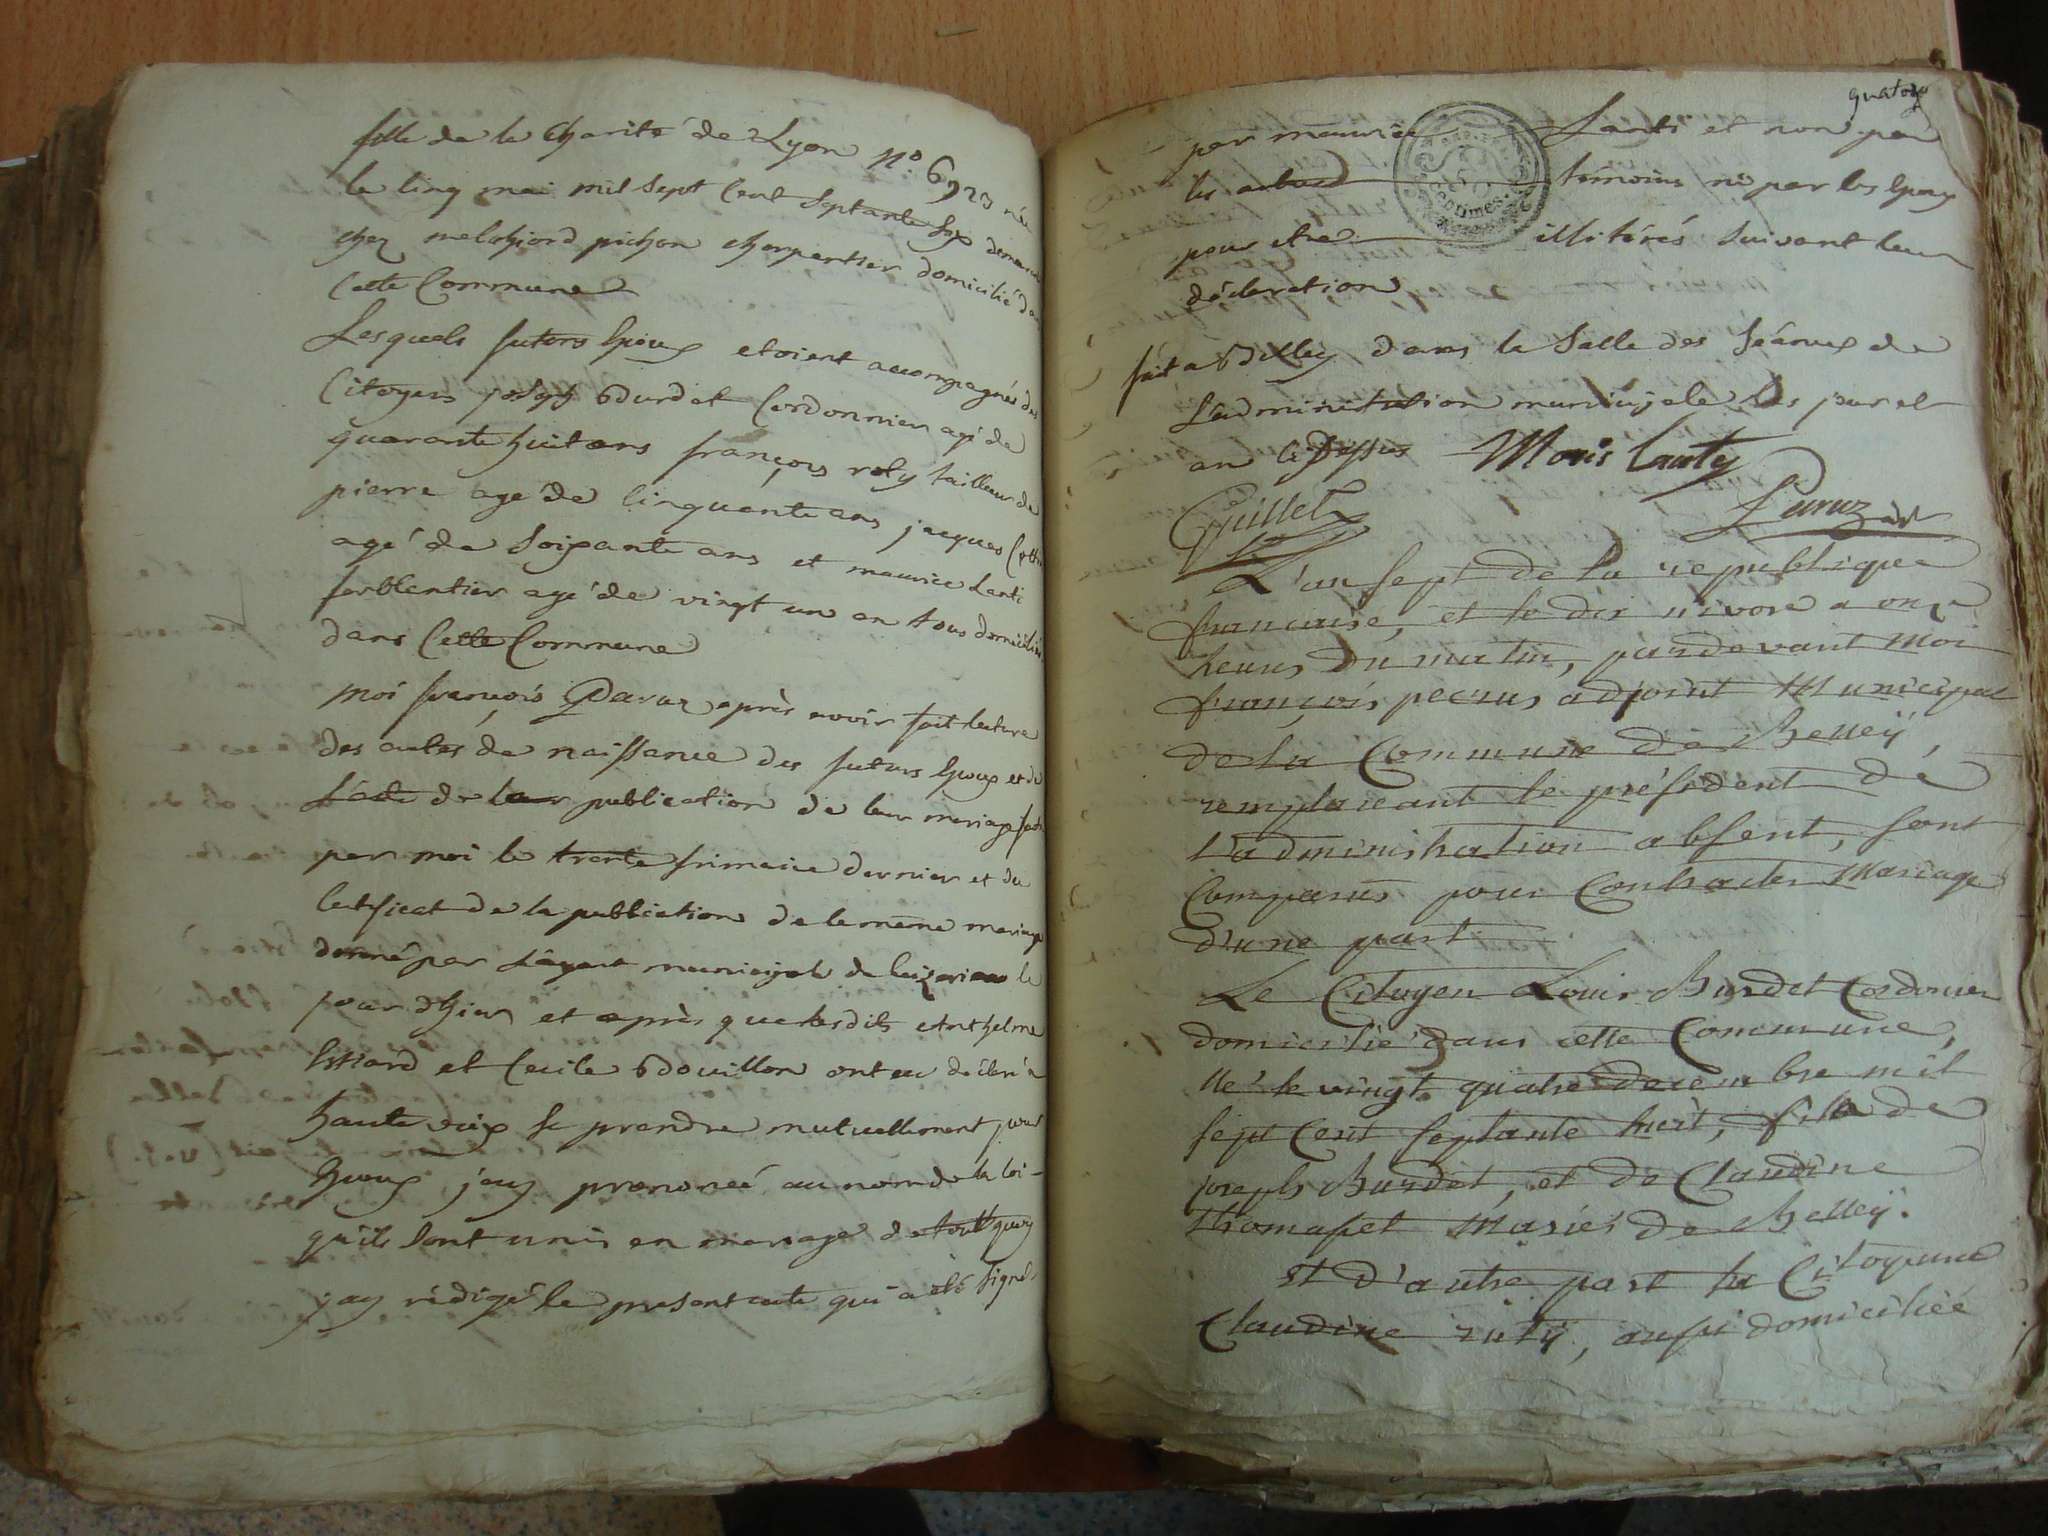 fille de la Charité de Lyon N.º 6923 née
le Cinq mai mil Sept Cent Septante Six
chez melchiord pichon charpentier domicilié dans
Cette Commune
Lesquels futurs Epoux etoient accompagnés des
Citoyens joseph Bdurdet Cordonnier agé de
quarante huit ans françois roly tailleur de
pierre agé de Cinquante ans jacques
agé de Soixante ans et maurice Lanti
ferblantier agé de vingt un an tous domiciliés
dans Cette Commune
Moi françois Peruz après avoir fait lecture
des actes de naissance des futurs Epoux et de
L'acte de leur publication de leur mariage
par moi le trente frimaire dernier et du
Certificat de la publication de le même mariage
donné par L'agent municipal de le
jour d'hier et après que lesdits Anthelme
et Cecile Bdouillon ont eu déclaré a
haute voix se prendre mutuellement pour
Epoux j'ay prononcé au nom de la Loi
qu'ils sont unis en mariage de tout quoy
j'ay rédigé le present acte qui a eté Signé
quatorze
par maurice Lanti et non par
les autres témoins ni par les Epoux
pour etre illitérés suivant leur
déclaration
CENTIMES
fait a Bdelley dans la Salle des Séances de
L'administration municipale les jour et
an Ci Dessus Moris Lanty
Guillet Peruz adt
L'an sept de la republique
francaise, et le dix nivose a onze
heures Du matin, pardevant Moi
françois peerus adjoint Municipal
de la Commune de Belleÿ,
remplaceant le président de
l'administration absent, sont
Comparus pour Contracter Mariage
d'une part
Le Citoyen Louis Burdet Cordonier
domicilié dans cette Commune,
né le vingt quatre decembre mil
sept Cent septante huit, fils de
joseph Burdet, et de Claudine
thomasset Mariés de Belleÿ.
et d'autre part la Citoyene
Claudine rutÿ, aussi domiciliée